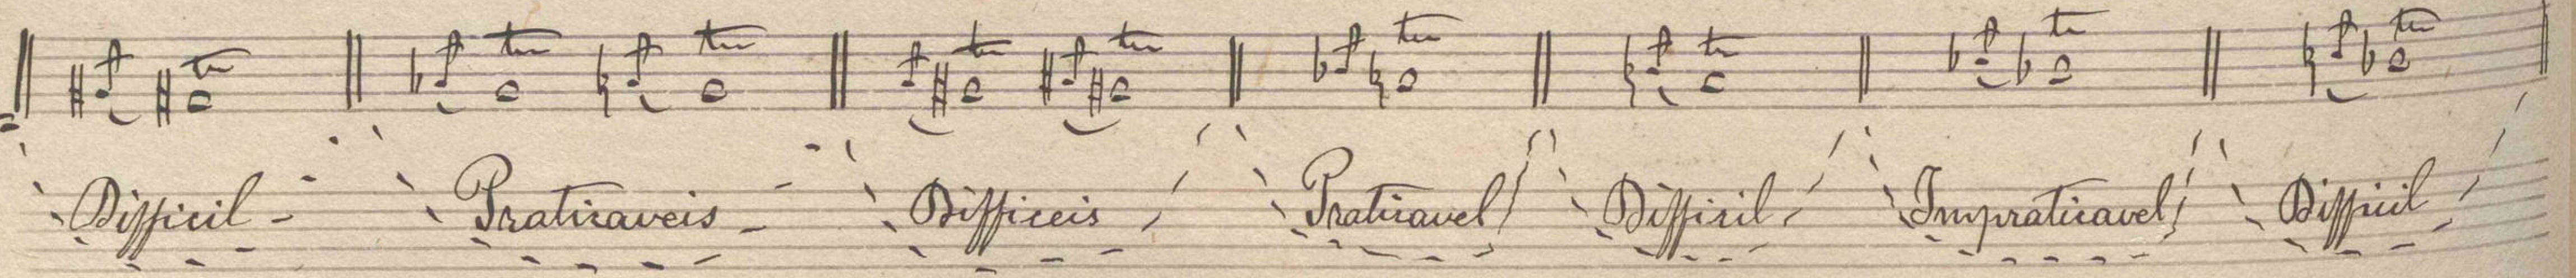 tr tr tr tr tr tr tr tr tr
Difficil Praticaveis Difficeis Praticavel Difficil Impraticavel Difficil